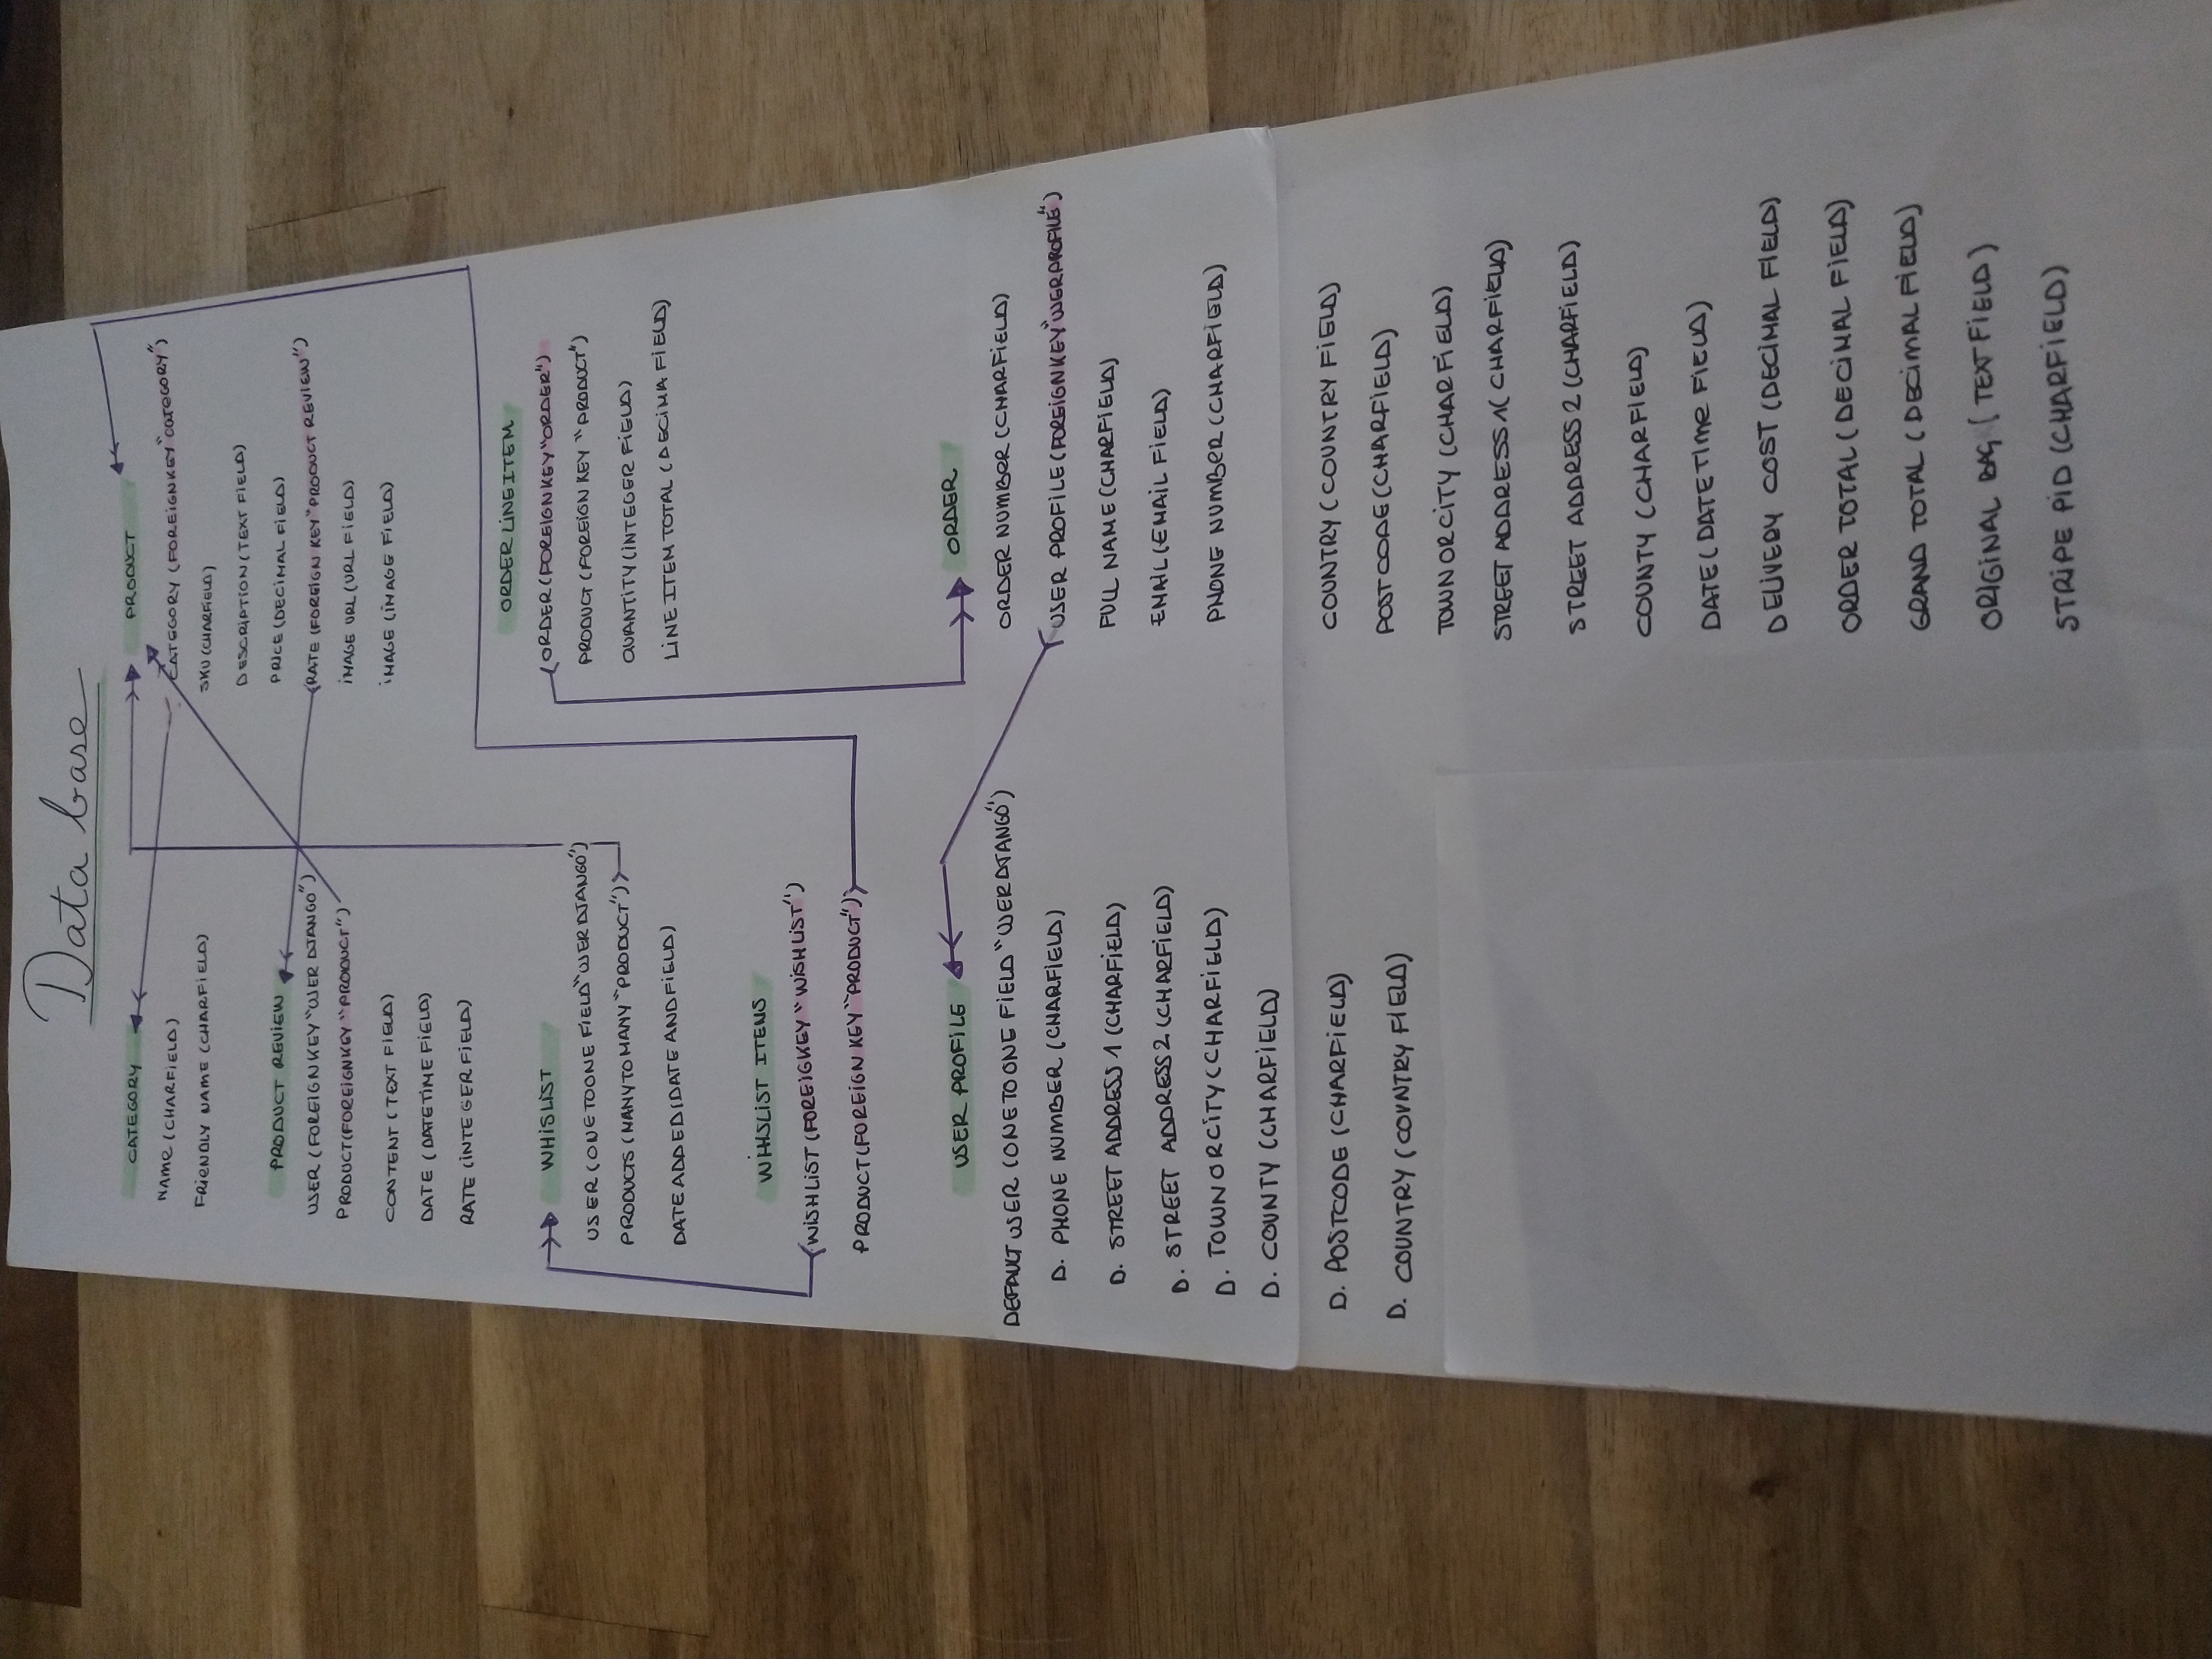 Data base
CATEGORY
NAME (CHARFIELD)
FRIENDLY NAME (CHARFIELD)
PRODUCT REVIEW
USER (FOREIGNKEY "USER DJANGO")
PRODUCT (FOREIGNKEY "PRODUCT")
CONTENT (TEXT FIELD)
DATE (DATETIME FIELD)
RATE (INTEGER FIELD)
WHISLIST
USER (ONETOONE FIELD "USER DJANGO")
PRODUCTS (MANYTOMANY "PRODUCT")
DATE ADDED (DATE AND FIELD)
WHHSLIST ITENS
WISHLIST (FOREIGKEY "WISHLIST")
PRODUCT (FOREIGN KEY "PRODUCT")
USER PROFILE
DEFAULT USER (ONETOONE FIELD "USER DJANGO")
D. PHONE NUMBER (CHARFIELD)
D. STREET ADDRESS 1 (CHARFIELD)
D. STREET ADDRESS 2 (CHARFIELD)
D. TOWNORCITY (CHARFIELD)
D. COUNTY (CHARFIELD)
D. POSTCODE (CHARFIELD)
D. COUNTRY (COUNTRY FIELD)
PRODUCT
CATEGORY (FOREIGNKEY "CATEGORY")
SKU (CHARFIELD)
DESCRIPTION (TEXT FIELD)
PRICE (DECIMAL FIELD)
RATE (FOREIGN KEY "PRODUCT REVIEW")
IMAGE URL (URL FIELD)
IMAGE (IMAGE FIELD)
ORDER LINEITEM
ORDER (FOREIGNKEY "ORDER")
PRODUCT (FOREIGN KEY "PRODUCT")
QUANTITY (INTEGER FIELD)
LINE ITEM TOTAL (DECIMA FIELD)
ORDER
ORDER NUMBER (CHARFIELD)
USER PROFILE (FOREIGNKEY "USERPROFILE")
FULL NAME (CHARFIELD)
EMAIL (EMAIL FIELD)
PHONE NUMBER (CHARFIELD)
COUNTRY (COUNTRY FIELD)
POSTCODE (CHARFIELD)
TOWNORCITY (CHARFIELD)
STREET ADDRESS 1 (CHARFIELD)
STREET ADDRESS 2 (CHARFIELD)
COUNTY (CHARFIELD)
DATE (DATETIME FIELD)
DELIVERY COST (DECIMAL FIELD)
ORDER TOTAL (DECIMAL FIELD)
GRAND TOTAL (DECIMAL FIELD)
ORIGINAL BAG (TEXT FIELD)
STRIPE PID (CHARFIELD)